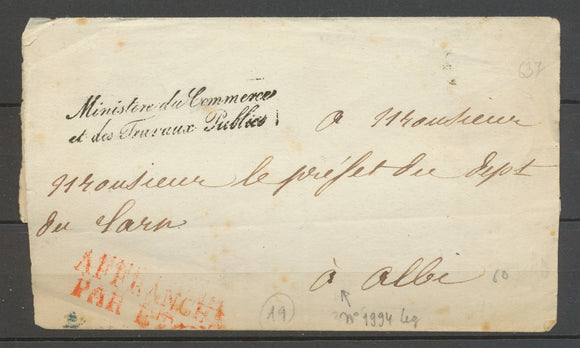 637
Ministère du Commerce
et des Travaux Publics
A Monsieur
Monsieur le préfet du dept
du Tarn
à Albi
60
AFFRANCHI
PAR
19
N° 1994